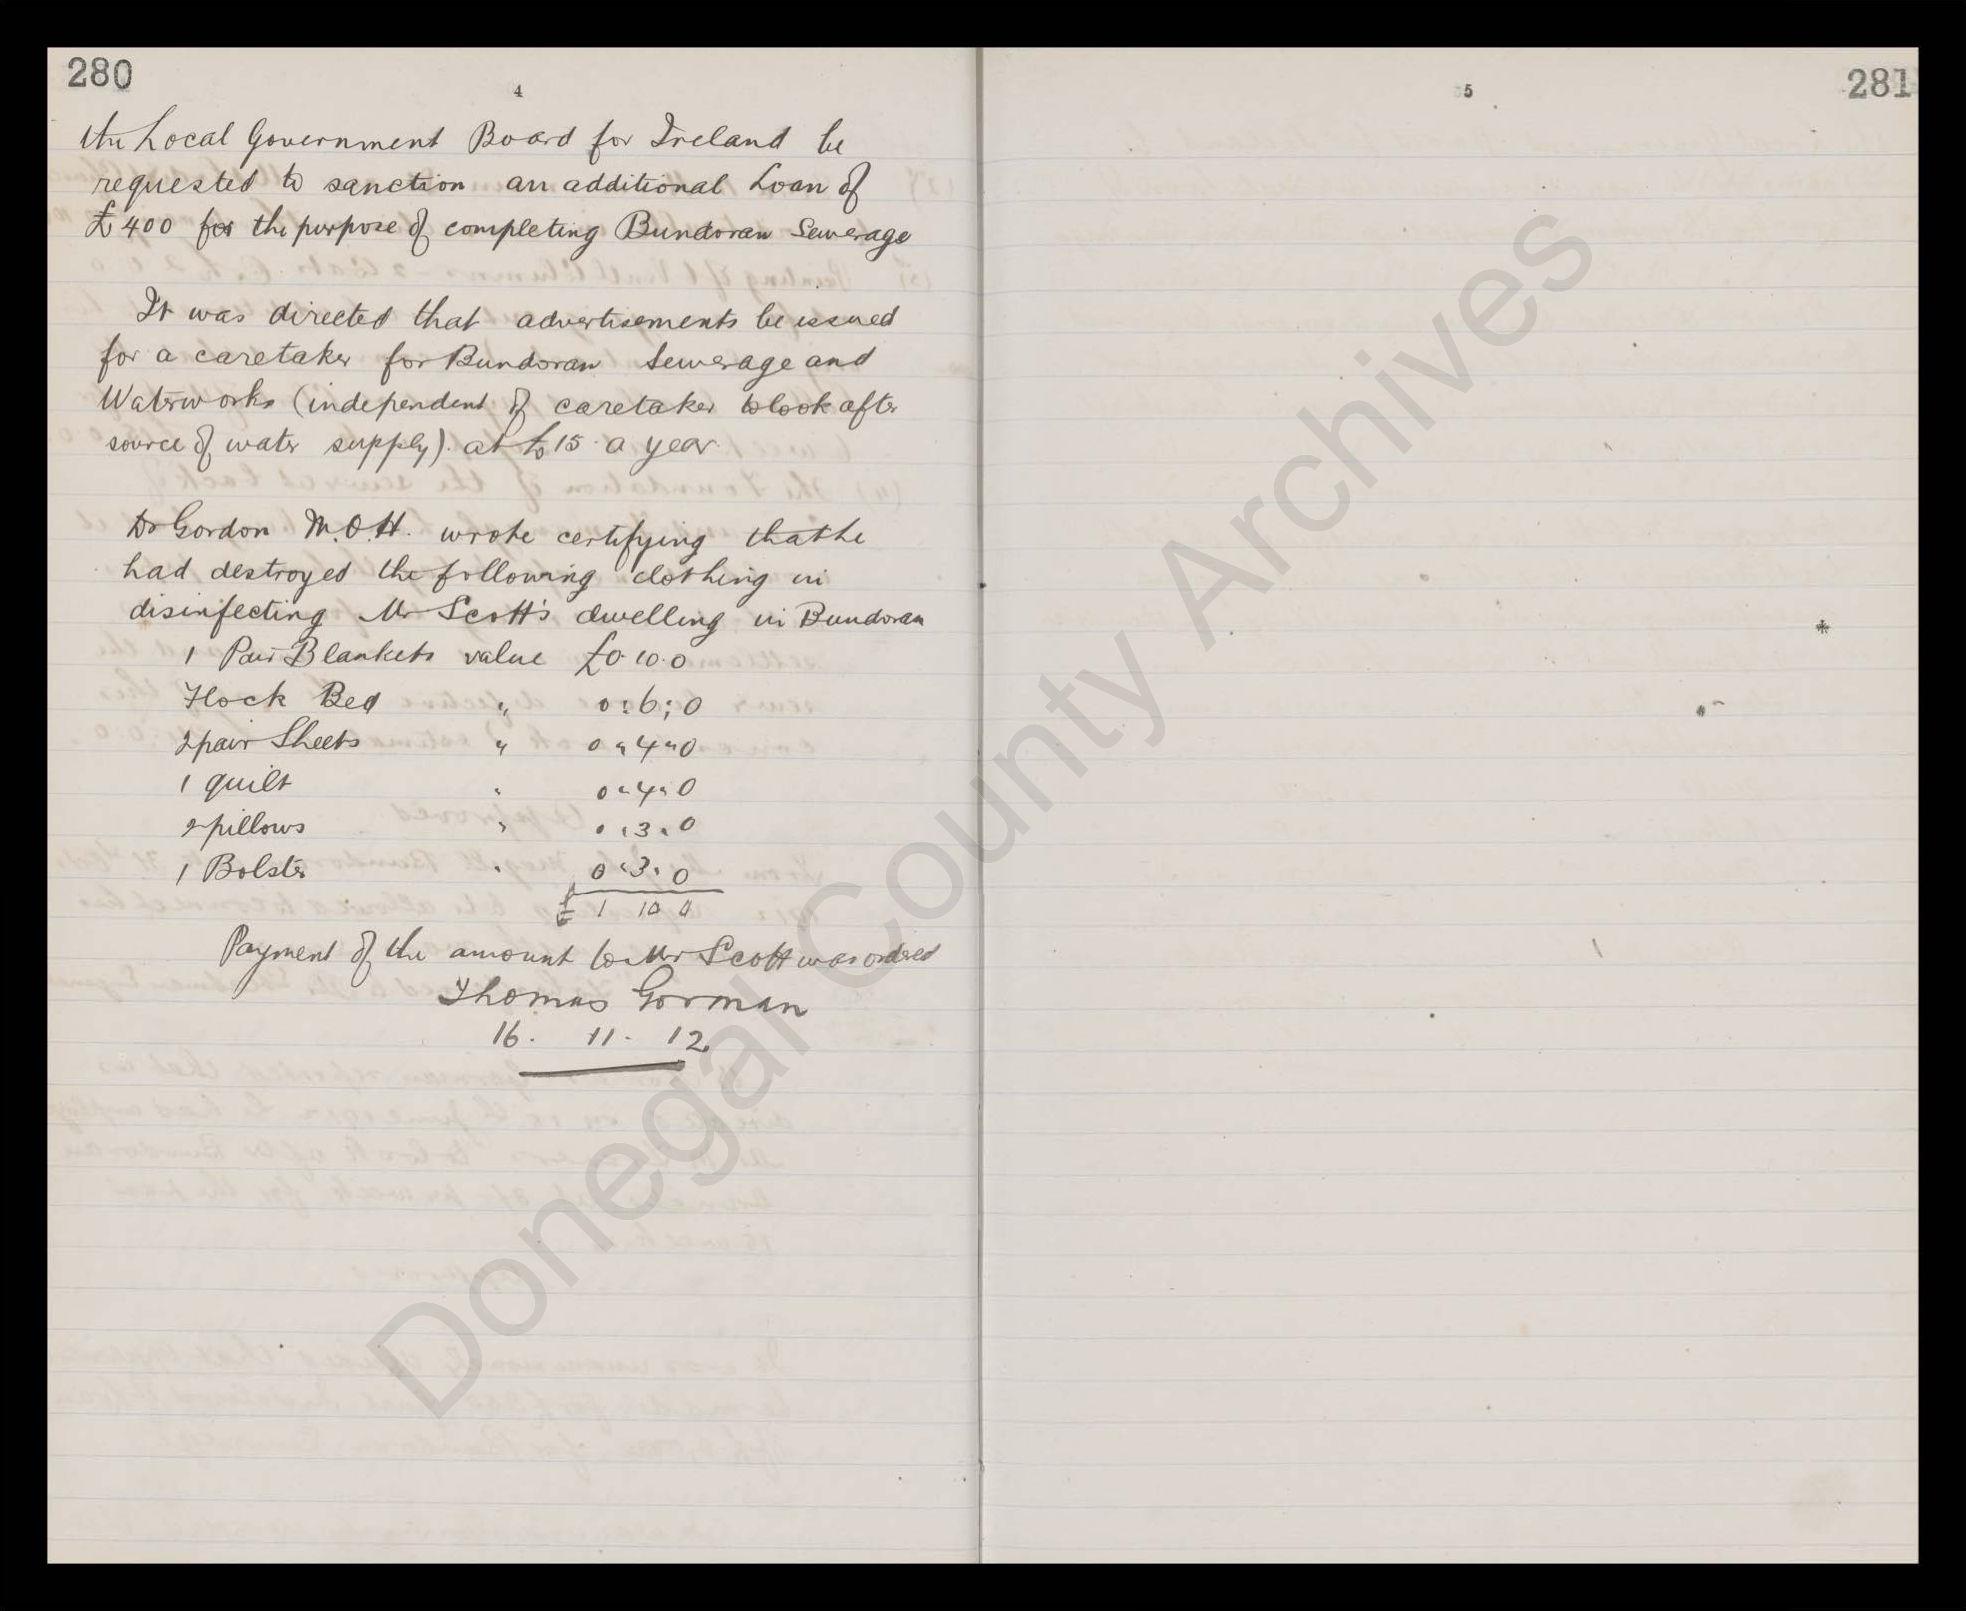 280
4
the Local Government Board for Ireland be
requested to sanction an additional Loan of
£400 for the purpose of completing Bundoran Sewerage
It was directed that advertisements be issued
for a caretaker for Bundoran Sewerage and
Waterworks (independent of caretaker to look after
source of water supply). at £15 a year.
Dr Gordon M.O.H. wrote certifying that he
had destroyed the following clothing in
disinfecting Mr Scott's dwelling in Bundoran
1 Pair Blankets value £0.10.0
Flock Bed " 0:6:0
2 pair Sheets " 0"4"0
1 quilt " 0"4"0
2 pillows " 0"3"0
1 Bolster " 0"3"0
£ 1 10 0
Payment of the amount to Mr Scott was ordered
Thomas Gorman
16. 11. 12
5
281
Donegal County Archives